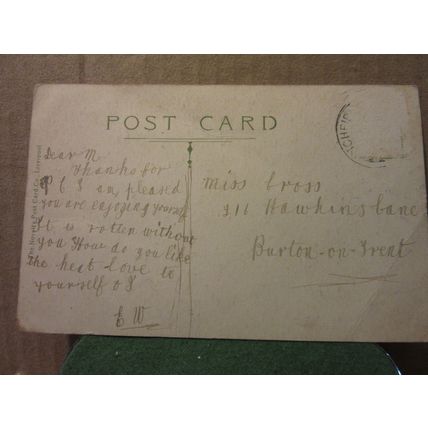 POST CARD
Dear M
Thanks for
P C I am pleased
you are enjoying yourself
It is rotten without
you How do you like
the heat love to
yourself
E W
Miss Cross
211 Hawkins Lane
Burton-on-Trent
Post Card Co Liverpool